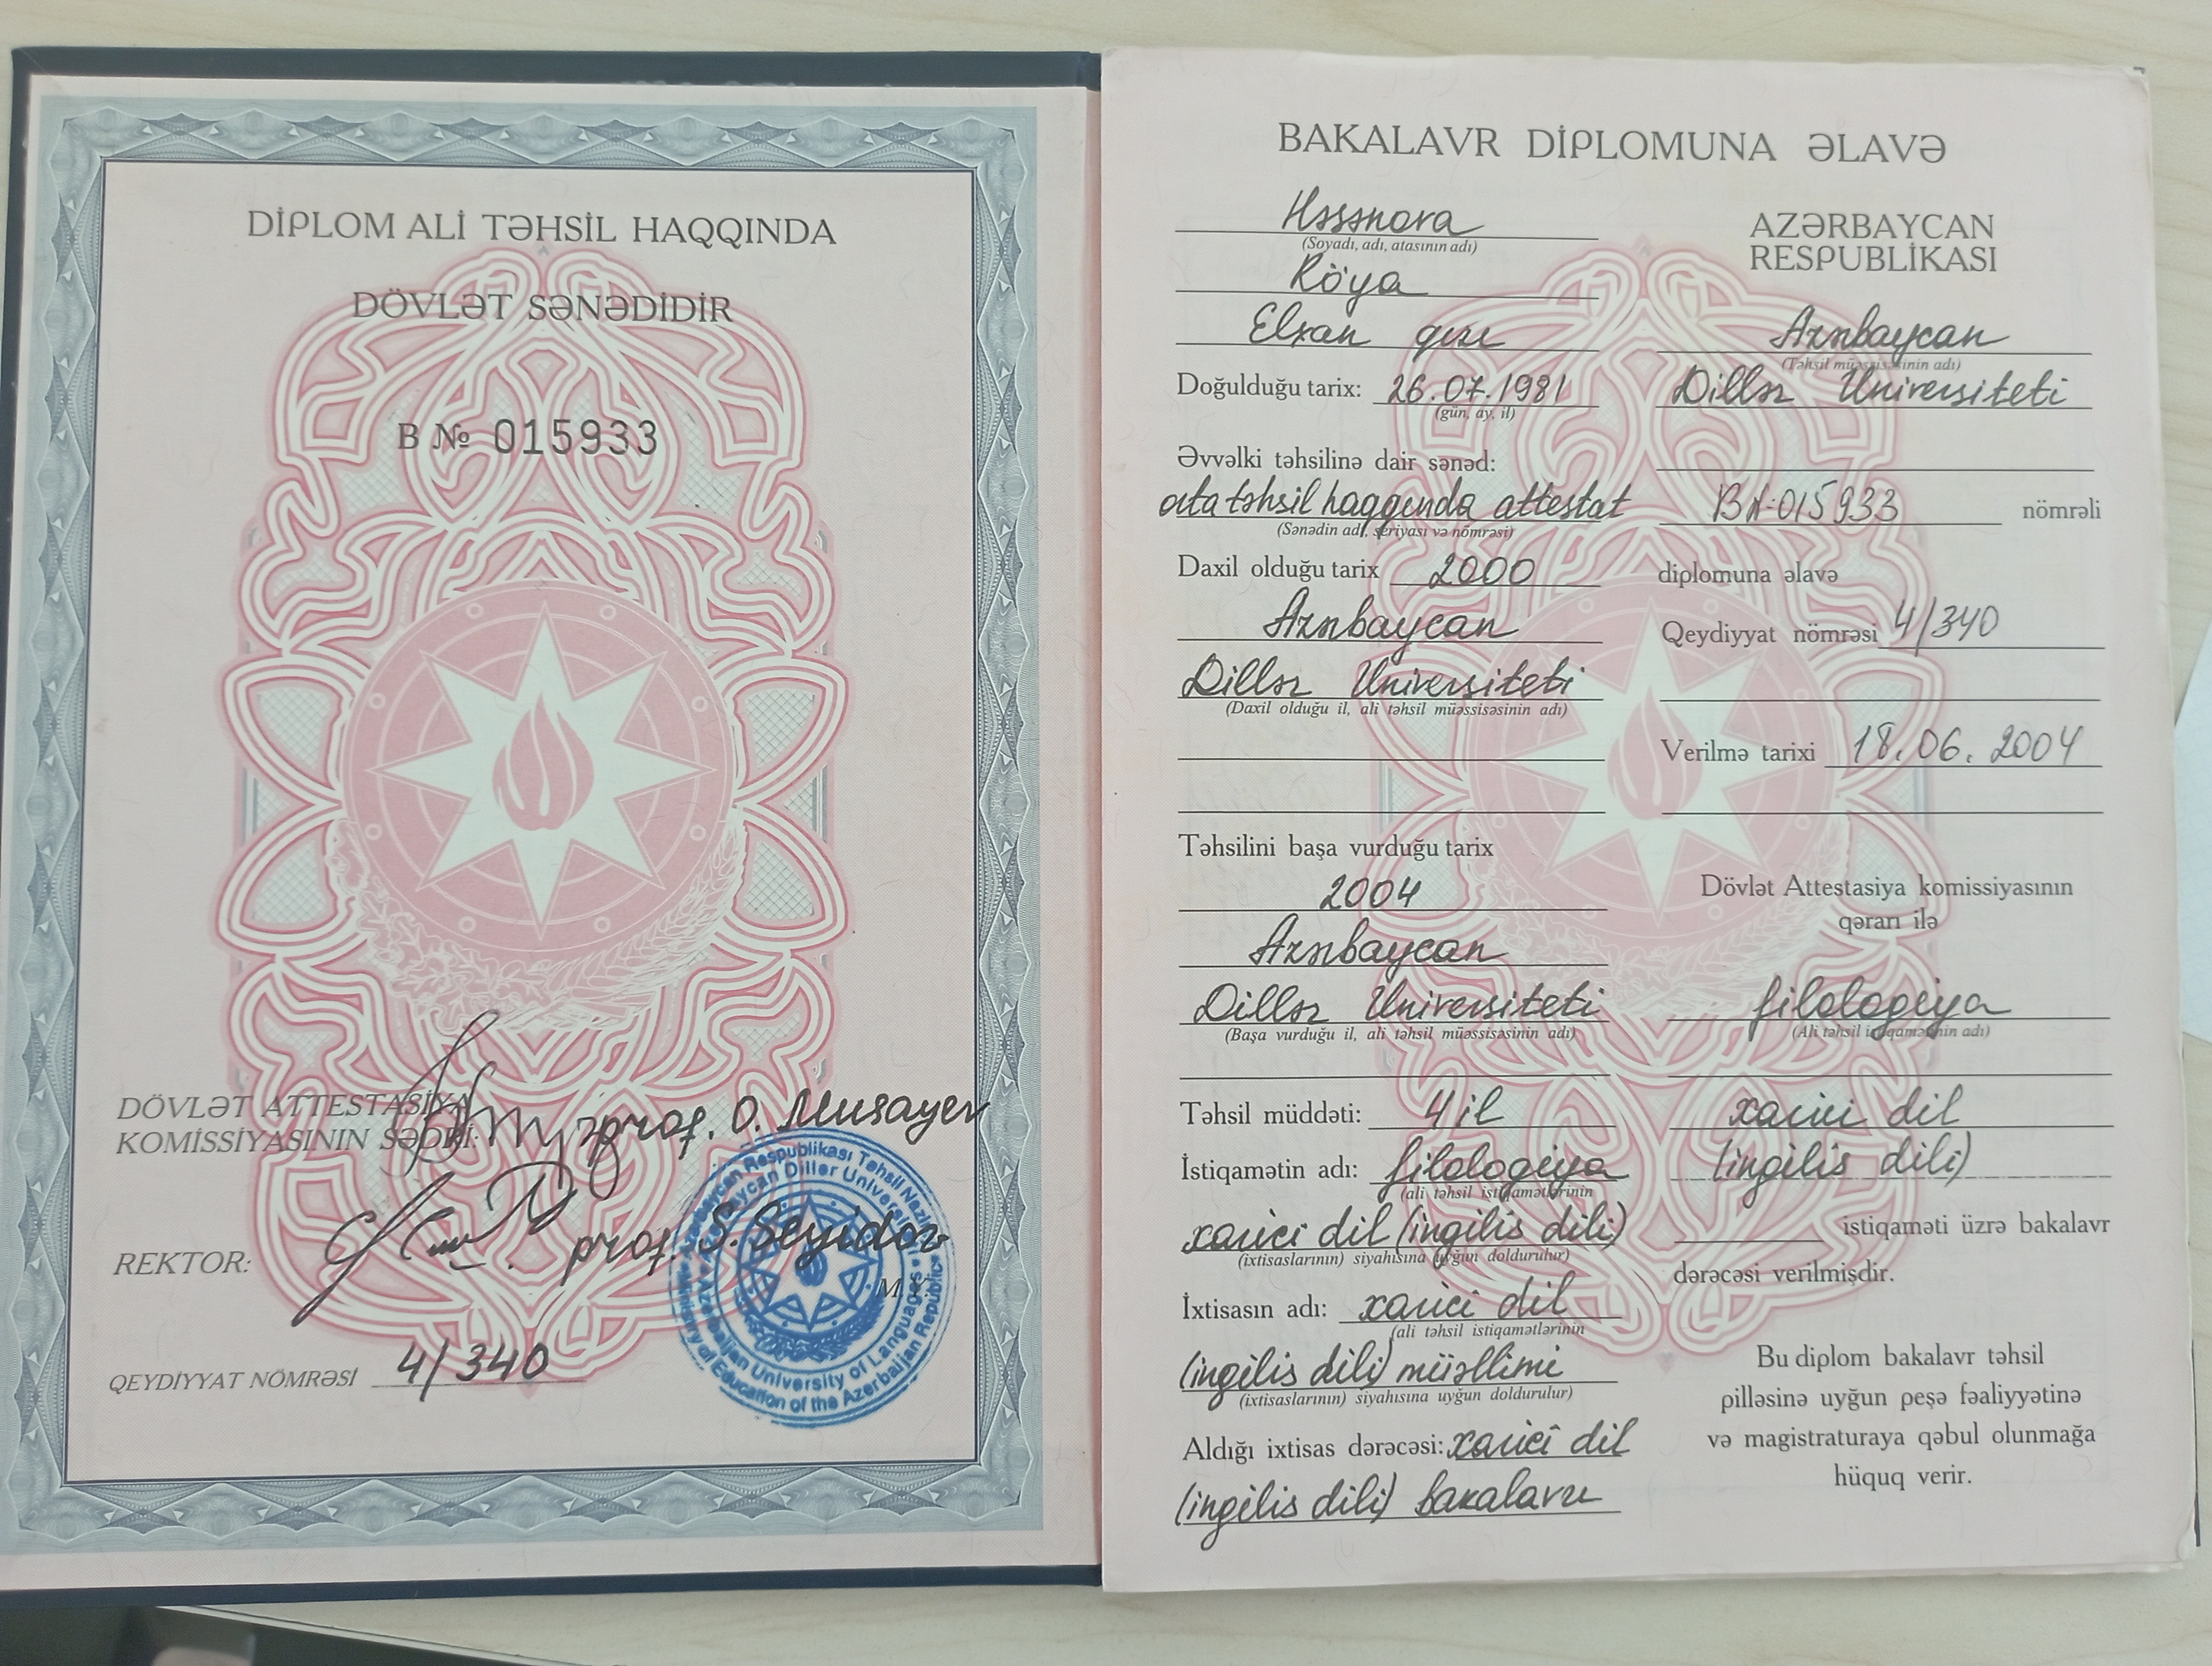 DİPLOM ALİ TƏHSİL HAQQINDA
DÖVLƏT SƏNƏDİDİR
B № 015933
DÖVLƏT ATTESTASİYA
KOMİSSİYASININ SƏDRİ:
prof. O. Musayev
REKTOR:
prof. S. Seyidov
M.Y.
QEYDİYYAT NÖMRƏSİ 4/340
Azərbaycan Respublikası Təhsil Nazirliyi
Azərbaycan Dillər Universiteti
Azerbaijan University of Languages
Ministry of Education of the Azerbaijan Republic
BAKALAVR DİPLOMUNA ƏLAVƏ
Həsənova
(Soyadı, adı, atasının adı)
Röya
Elxan qızı
Doğulduğu tarix: 26.07.1981
(gün, ay, il)
Əvvəlki təhsilinə dair sənəd:
orta təhsil haqqında attestat
(Sənədin adı, seriyası və nömrəsi)
Daxil olduğu tarix 2000
Azərbaycan
Dillər Universiteti
(Daxil olduğu il, ali təhsil müəssisəsinin adı)
Təhsilini başa vurduğu tarix
2004
Azərbaycan
Dillər Universiteti
(Başa vurduğu il, ali təhsil müəssisəsinin adı)
Təhsil müddəti: 4 il
İstiqamətin adı: filologiya
(ali təhsil istiqamətlərinin
xarici dil (ingilis dili)
(ixtisaslarının) siyahısına uyğun doldurulur)
İxtisasın adı: xarici dil
(ali təhsil istiqamətlərinin
(ingilis dili) müəllimi
(ixtisaslarının) siyahısına uyğun doldurulur)
Aldığı ixtisas dərəcəsi: xarici dil
(ingilis dili) bakalavrı
AZƏRBAYCAN
RESPUBLİKASI
Azərbaycan
(Təhsil müəssisəsinin adı)
Dillər Universiteti
B№015933 nömrəli
diplomuna əlavə
Qeydiyyat nömrəsi 4/340
Verilmə tarixi 18.06.2004
Dövlət Attestasiya komissiyasının
qərarı ilə
filologiya
(Ali təhsil istiqamətinin adı)
xarici dil
(ingilis dili)
istiqaməti üzrə bakalavr
dərəcəsi verilmişdir.
Bu diplom bakalavr təhsil
pilləsinə uyğun peşə fəaliyyətinə
və magistraturaya qəbul olunmağa
hüquq verir.